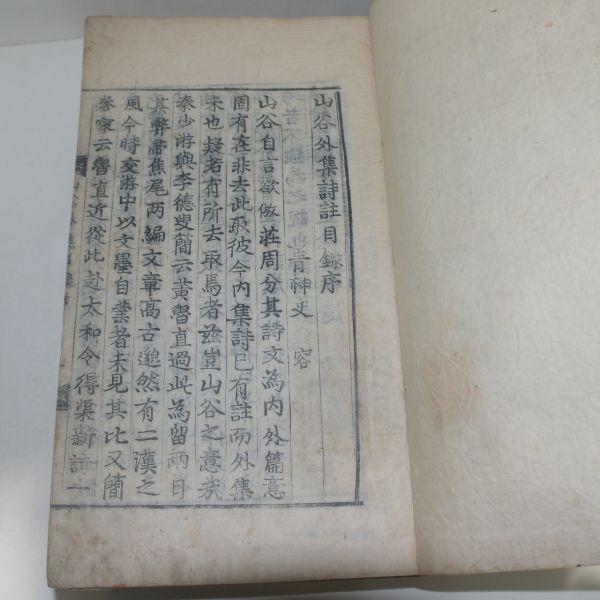 山谷外集詩註目錄序
青神史 容
山谷自言欲倣莊周分其詩文為內外篇意
固有在非去此取彼今內集詩已有註而外集
未也疑者有所去取焉者茲豈山谷之意哉
秦少游與李德叟簡云黃魯直過此為留兩日
其弊帚焦尾兩編文章高古邈然有二漢之
風今時交游中以文墨自業者未見其比又簡
參寥云魯直近從此赴太和令得渠新詩一